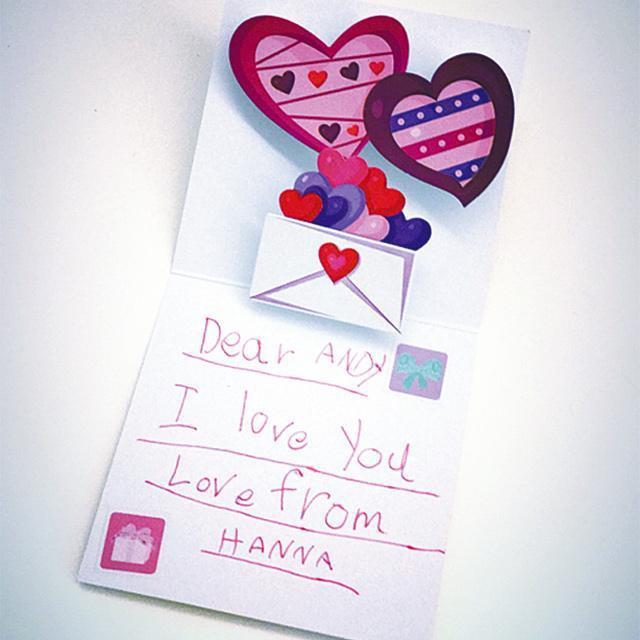 Dear ANDY
I love You
Love from
HANNA